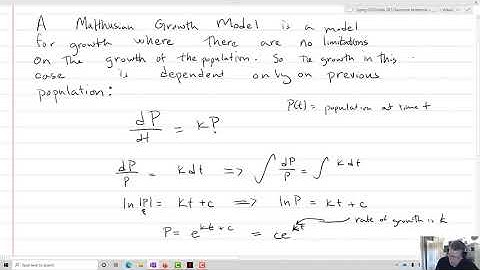 A Malthusian Growth Model is a model
for growth where there are no limitations
on the growth of the population. So the growth in this
case is dependent only on previous
population:
P(t) = population at time t
dP/dt = kP
dP/P = k dt => ∫ dP/P = ∫ k dt
ln|P| = kt + c => ln P = kt + c
rate of growth is k
P = e^(kt + c) = ce^(kt)